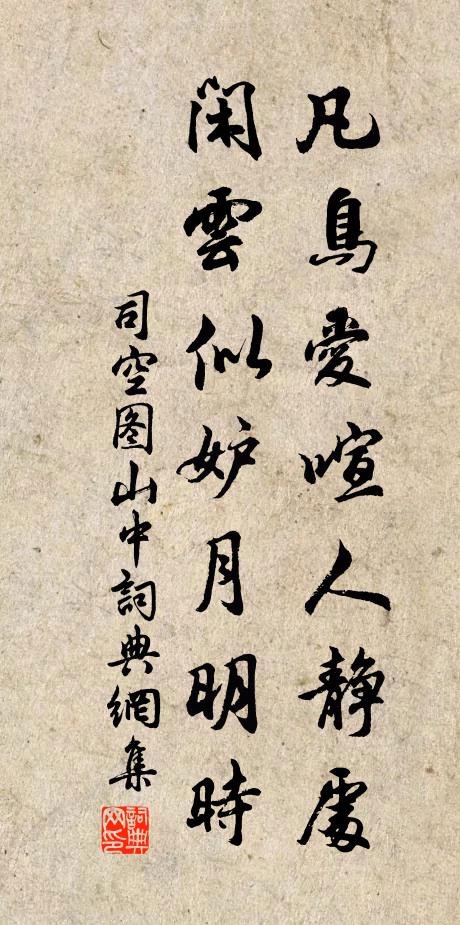 凡鳥愛喧人靜處
閑雲似妒月明時
司空图山中詞典網集
詞典
网印